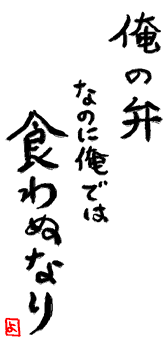 俺の弁
なのに俺では
食わぬなり
よ